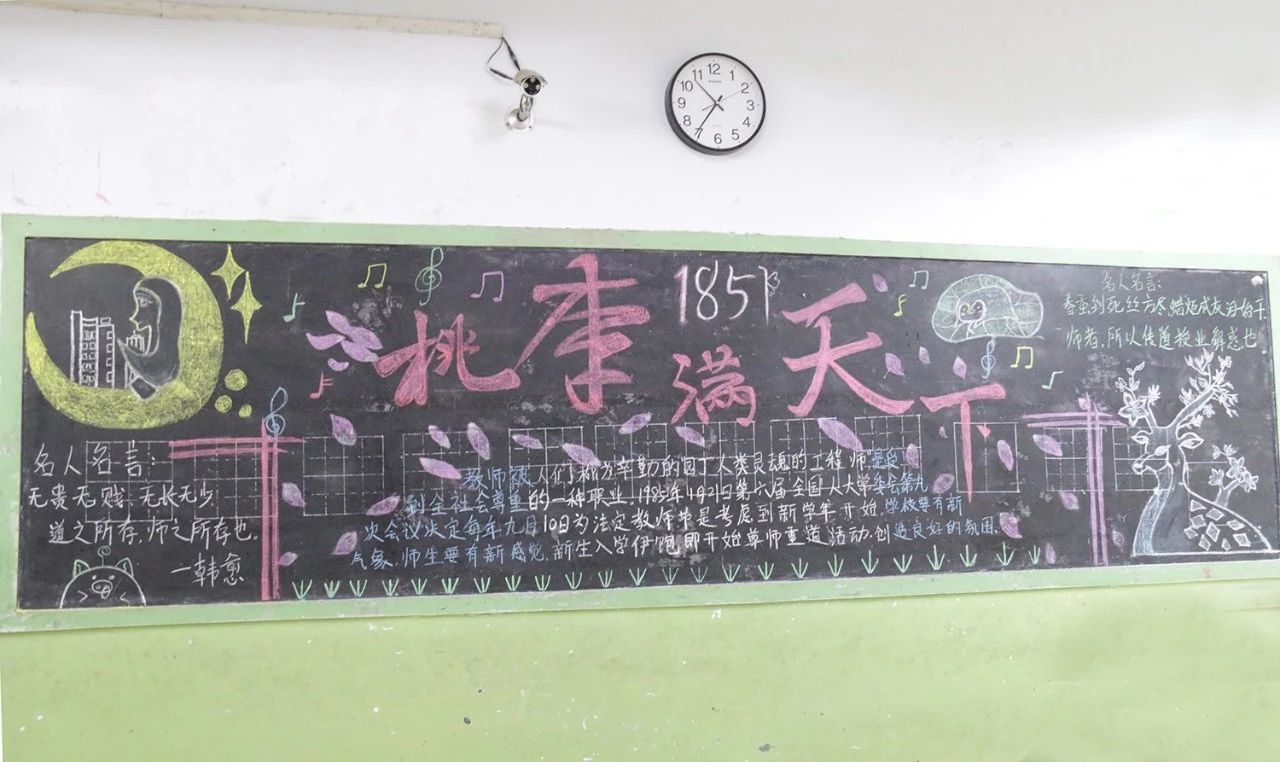 12
1
2
3
4
5
6
7
8
9
10
11
1851
桃李满天下
名人名言:
无贵无贱,无长无少,
道之所存,师之所存也.
一韩愈
教师被人们称为辛勤的园丁人类灵魂的工程师是受
到全社会尊重的一种职业.1985年1月21日第六届全国人大常委会第九
次会议决定每年九月10日为法定教师节是考虑到新学年开始,学校要有新
气象.师生要有新感觉.新生入学伊始,即开始尊师重道活动,创造良好的氛围.
名人名言:
师者,所以传道授业解惑也